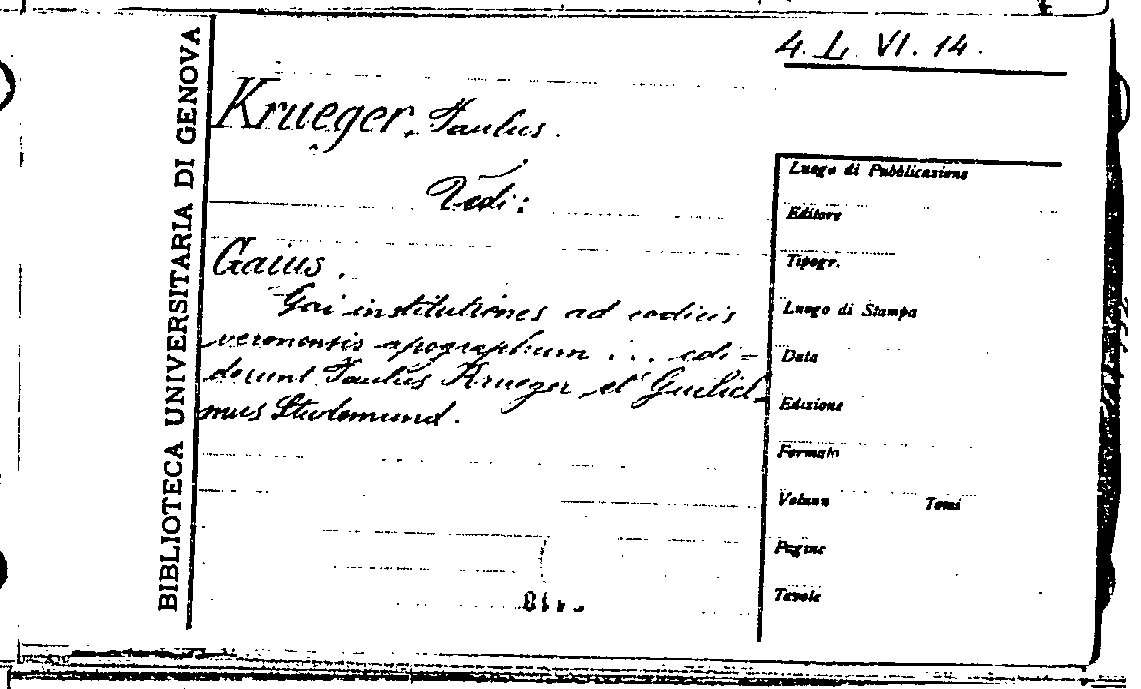 BIBLIOTECA UNIVERSITARIA DI GENOVA
4. L. VI. 14.
Krueger, Paulus.
Vedi:
Gaius.
Gai institutiones ad codicis
veronensis apographum ... edi-
derunt Paulus Krueger et Guiliel-
mus Studemund.
Luogo di Pubblicazione
Editore
Tipogr.
Luogo di Stampa
Data
Edizione
Formato
Volumi Tomi
Pagine
Tavole